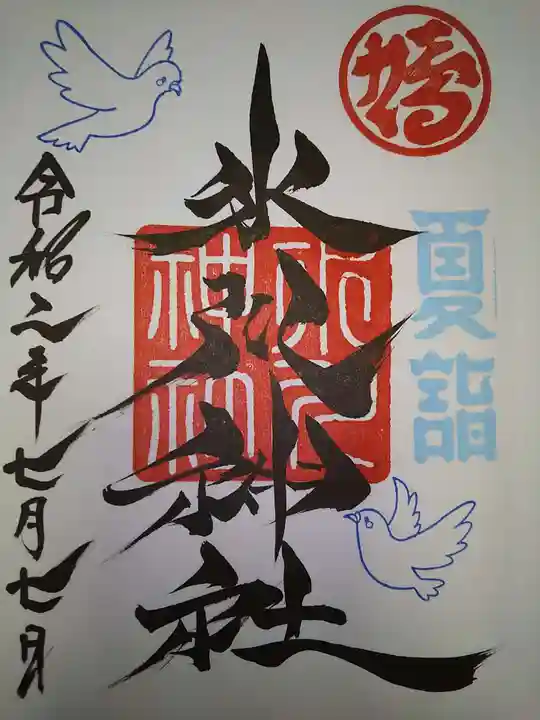 夏詣
氷川神社
氷川
神社
令和二年七月七日